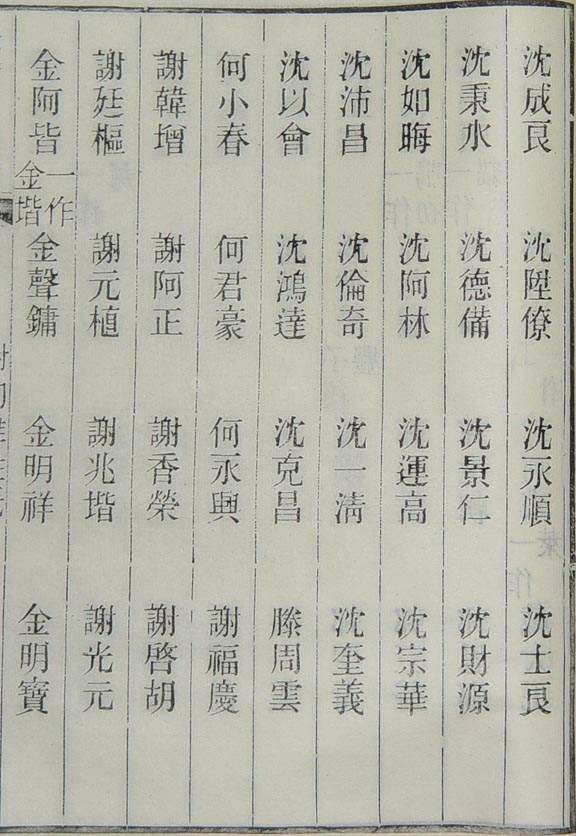 沈成良 沈陞僚 沈永順 沈士良
沈秉水 沈德備 沈景仁 沈財源
沈如晦 沈阿林 沈運高 沈宗華
沈沛昌 沈倫奇 沈一淸 沈奎義
沈以會 沈鴻達 沈克昌 滕周雲
何小春 何君豪 何永興 謝福慶
謝韓增 謝阿正 謝香榮 謝啓胡
謝廷樞 謝元植 謝兆堦 謝光元
金阿皆 一作金堦 金聲鏞 金明祥 金明寶